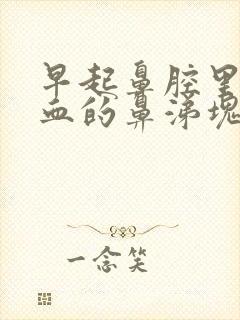 早起鼻腔里
血的鼻涕块
一念笑